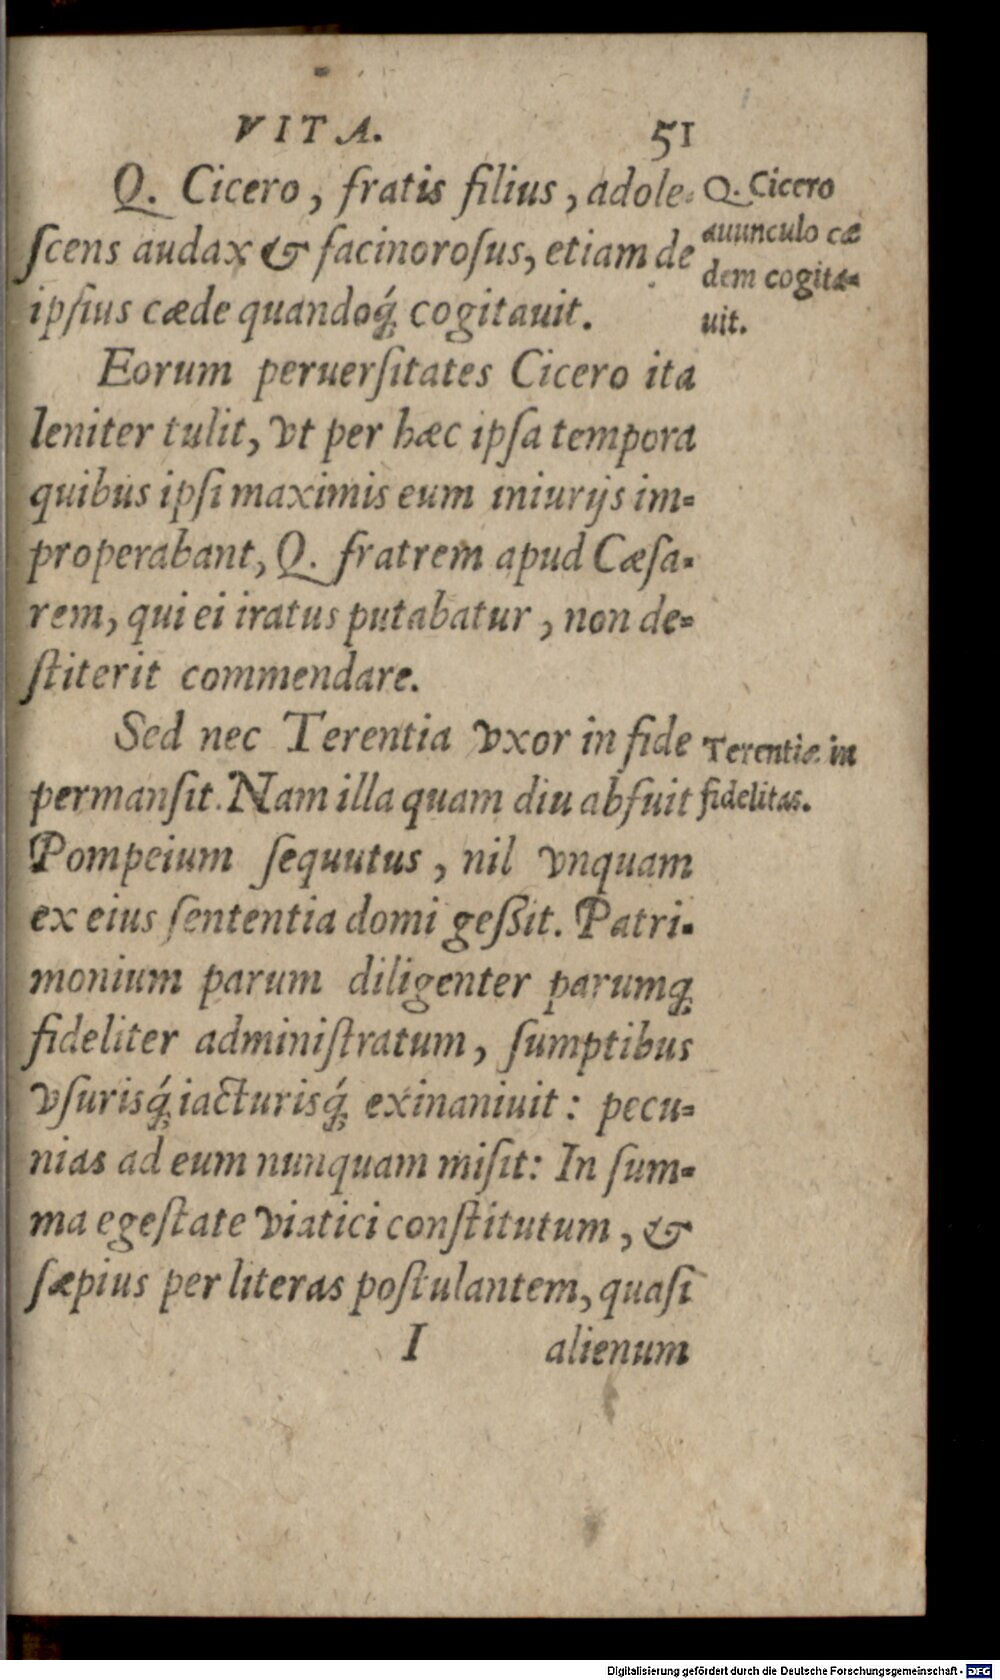 VITA. 51
Q. Cicero, fratis filius, adole-
ſcens audax & facinoroſus, etiam de
ipſius cæde quandoq́; cogitauit.
Q. Cicero
auunculo cæ
dem cogita-
uit.
Eorum peruerſitates Cicero ita
leniter tulit, vt per hæc ipſa tempora
quibus ipſi maximis eum iniurijs im-
properabant, Q. fratrem apud Cæſa-
rem, qui ei iratus putabatur, non de-
ſtiterit commendare.
Sed nec Terentia vxor in fide
permanſit. Nam illa quam diu abfuit
Terentiæ in
fidelitas.
Pompeium ſequutus, nil vnquam
ex eius ſententia domi geſſit. Patri-
monium parum diligenter parumq;
fideliter adminiſtratum, ſumptibus
vſurisq́; iacturisq́; exinaniuit: pecu-
nias ad eum nunquam miſit: In ſum-
ma egeſtate viatici conſtitutum, &
ſæpius per literas poſtulantem, quaſi
I alienum
Digitalisierung gefördert durch die Deutsche Forschungsgemeinschaft - DFG